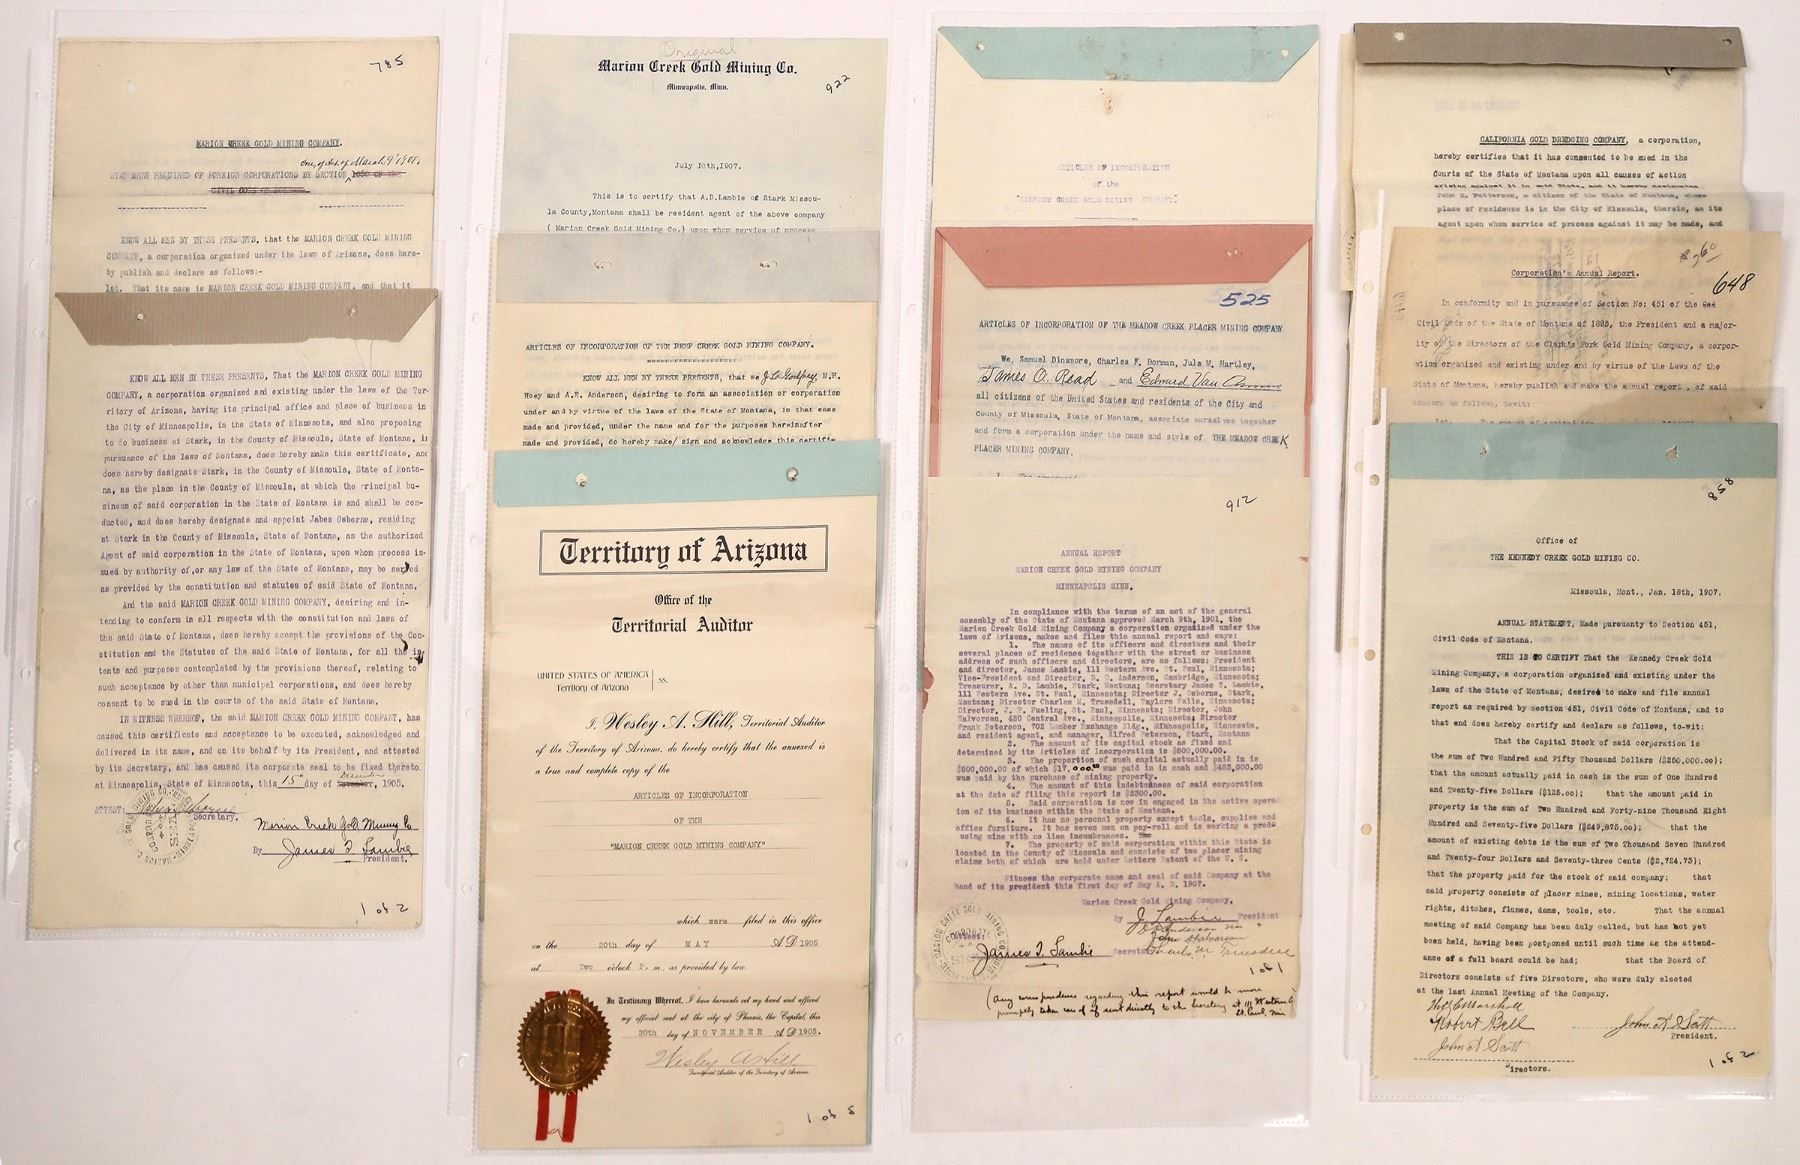 785
MARION CREEK GOLD MINING COMPANY.
STATEMENT REQUIRED OF FOREIGN CORPORATIONS BY SECTION
KNOW ALL MEN BY THESE PRESENTS, that the MARION CREEK GOLD MINING
COMPANY, a corporation organized under the laws of Arizona, does here-
by publish and declare as follows:-
1st. That its name is MARION CREEK GOLD MINING COMPANY, and that it
KNOW ALL MEN BY THESE PRESENTS, That the MARION CREEK GOLD MINING
COMPANY, a corporation organized and existing under the laws of the Ter-
ritory of Arizona, having its principal office and place of business in
the City of Minneapolis, in the State of Minnesota, and also proposing
to do business at Stark, in the County of Missoula, State of Montana, in
pursuance of the laws of Montana, does hereby make this certificate, and
does hereby designate Stark, in the County of Missoula, State of Monta-
na, as the place in the County of Missoula, at which the principal bu-
siness of said corporation in the State of Montana is and shall be con-
ducted, and does hereby designate and appoint Jabes Osborne, residing
at Stark in the County of Missoula, State of Montana, as the authorized
Agent of said corporation in the State of Montana, upon whom process is-
sued by authority of, or any law of the State of Montana, may be served
as provided by the constitution and statutes of said State of Montana.
And the said MARION CREEK GOLD MINING COMPANY, desiring and in-
tending to conform in all respects with the constitution and laws of
the said State of Montana, does hereby accept the provisions of the Con-
stitution and the Statutes of the said State of Montana, for all the in
tents and purposes contemplated by the provisions thereof, relating to
such acceptance by other than municipal corporations, and does hereby
consent to be sued in the courts of the said State of Montana.
IN WITNESS WHEREOF, the said MARION CREEK GOLD MINING COMPANY, has
caused this certificate and acceptance to be executed, acknowledged and
delivered in its name, and on its behalf by its President, and attested
by its Secretary, and has caused its corporate seal to be fixed thereto
at Minneapolis, State of Minnesota, this 15th day of December, 1905.
ATTEST:
Secretary.
Marion Creek Gold Mining Co
By James T Lambie
President.
1 of 2
Original
Marion Creek Gold Mining Co.
Minneapolis, Minn.
922
July 10th, 1907.
This is to certify that A.D.Lambie of Stark Missou-
la County,Montana shall be resident agent of the above company
( Marion Creek Gold Mining Co.) upon whom service of process
ARTICLES OF INCORPORATION OF THE DEEP CREEK GOLD MINING COMPANY.
KNOW ALL MEN BY THESE PRESENTS, that we
Hoey and A.E. Anderson, desiring to form an association or corporation
under and by virtue of the laws of the State of Montana, in that case
made and provided, under the name and for the purposes hereinafter
made and provided, do hereby make/ sign and acknowledge this certifi-
Territory of Arizona
Office of the
Territorial Auditor
UNITED STATES OF AMERICA
Territory of Arizona
ss.
I, Wesley A. Hill, Territorial Auditor
of the Territory of Arizona, do hereby certify that the annexed is
a true and complete copy of the
ARTICLES OF INCORPORATION
OF THE
"MARION CREEK GOLD MINING COMPANY"
which were filed in this office
on the 20th day of MAY A.D. 1905
at Two o'clock P. m., as provided by law.
In Testimony Whereof, I have hereunto set my hand and affixed
my official seal at the city of Phoenix, the Capital, this
20th day of NOVEMBER A.D. 1905.
Wesley A Hill
Territorial Auditor of the Territory of Arizona
1 of 5
ARTICLES OF INCORPORATION
of the
"KENNEDY CREEK GOLD MINING COMPANY".
525
ARTICLES OF INCORPORATION OF THE MEADOW CREEK PLACER MINING COMPANY
We, Samuel Dinsmore, Charles F. Dorman, Jule M. Hartley,
James A. Read and Edmund Van
all citizens of the United States and residents of the City and
County of Missoula, State of Montana, associate ourselves together
and form a corporation under the name and style of THE MEADOW CREEK
PLACER MINING COMPANY.
912
ANNUAL REPORT
MARION CREEK GOLD MINING COMPANY
MINNEAPOLIS MINN.
In compliance with the terms of an act of the general
assembly of the State of Montana approved March 9th, 1901, the
Marion Creek Gold Mining Company a corporation organized under the
laws of Arizona, makes and files this annual report and says:
1. The names of its officers and directors and their
several places of residence together with the street or business
address of such officers and directors, are as follows: President
and director, James Lambie, 111 Western Ave. St. Paul, Minnesota;
Vice-President and Director, D. O. Anderson, Cambridge, Minnesota;
Treasurer, A. D. Lambie, Stark, Montana; Secretary James T. Lambie,
111 Western Ave. St. Paul, Minnesota; Director J. Osborne, Stark,
Montana; Director Charles M. Truesdell, Taylors Falls, Minnesota;
Director, J. P. Fueling, St. Paul, Minnesota; Director, John
Halvorsen, 420 Central Ave., Minneapolis, Minnesota; Director
Frank Peterson, 702 Lumber Exchange Bldg., Minneapolis, Minnesota,
and resident agent, and manager, Alfred Peterson, Stark, Montana
2. The amount of its capital stock as fixed and
determined by its Articles of Incorporation is $500,000.00.
3. The proportion of such capital actually paid in is
$500,000.00 of which $17,000.00 was paid in in cash and $483,000.00
was paid by the purchase of mining property.
4. The amount of the indebtedness of said corporation
at the date of filing this report is $2300.00.
5. Said corporation is now in engaged in the active opera
ion of its business within the State of Montana.
6. It has no personal property except tools, supplies and
office furniture. It has seven men on pay-roll and is working a prod-
using mine with no lien incumbrances.
7. The property of said corporation within this State is
located in the County of Missoula and consists of two placer mining
claims both of which are held under Letters Patent of the U. S.
Witness the corporate name and seal of said Company at the
hand of its president this first day of May A. D. 1907.
Marion Creek Gold Mining Company.
By J Lambie President
Attest:
James T. Lambie Secretary
1 of 1
(Any correspondence regarding this report would be more
promptly taken care of if sent directly to the Secretary at 111 Western Av
St. Paul, Minn
CALIFORNIA GOLD DREDGING COMPANY, a corporation,
hereby certifies that it has consented to be sued in the
Courts of the State of Montana upon all causes of action
arising against it in said State, and it hereby designates
John E. Patterson, a citizen of the State of Montana, whose
place of residence is in the City of Missoula, therein, as its
agent upon whom service of process against it may be made, and
648
Corporation's Annual Report.
In conformity and in pursuance of Section No: 451 of the
Civil Code of the State of Montana of 1895, the President and a major-
ity of the Directors of the Clark's Fork Gold Mining Company, a corpor-
ation organized and existing under and by virtue of the Laws of the
State of Montana, hereby publish and make the annual report, of said
concern as follows, towit:
858
Office of
THE KENNEDY CREEK GOLD MINING CO.
Missoula, Mont., Jan. 18th, 1907.
ANNUAL STATEMENT, Made pursuant to Section 451,
Civil Code of Montana.
THIS IS TO CERTIFY That the Kennedy Creek Gold
Mining Company, a corporation organized and existing under the
laws of the State of Montana, desires to make and file annual
report as required by section 451, Civil Code of Montana, and to
that end does hereby certify and declare as follows, to-wit:
That the Capital Stock of said corporation is
the sum of Two Hundred and Fifty Thousand Dollars ($250,000.00);
that the amount actually paid in cash is the sum of One Hundred
and Twenty-five Dollars ($125.00); that the amount paid in
property is the sum of Two Hundred and Forty-nine Thousand Eight
Hundred and Seventy-five Dollars ($249,875.00); that the
amount of existing debts is the sum of Two Thousand Seven Hundred
and Twenty-four Dollars and Seventy-three Cents ($2,724.73);
that the property paid for the stock of said company; that
said property consists of placer mines, mining locations, water
rights, ditches, flumes, dams, tools, etc. That the annual
meeting of said Company has been duly called, but has not yet
been held, having been postponed until such time as the attend-
ance of a full board could be had; that the Board of
Directors consists of five Directors, who were duly elected
at the last Annual Meeting of the Company.
Robert Bell
John A Scott
John A Scott
President.
Directors.
1 of 2